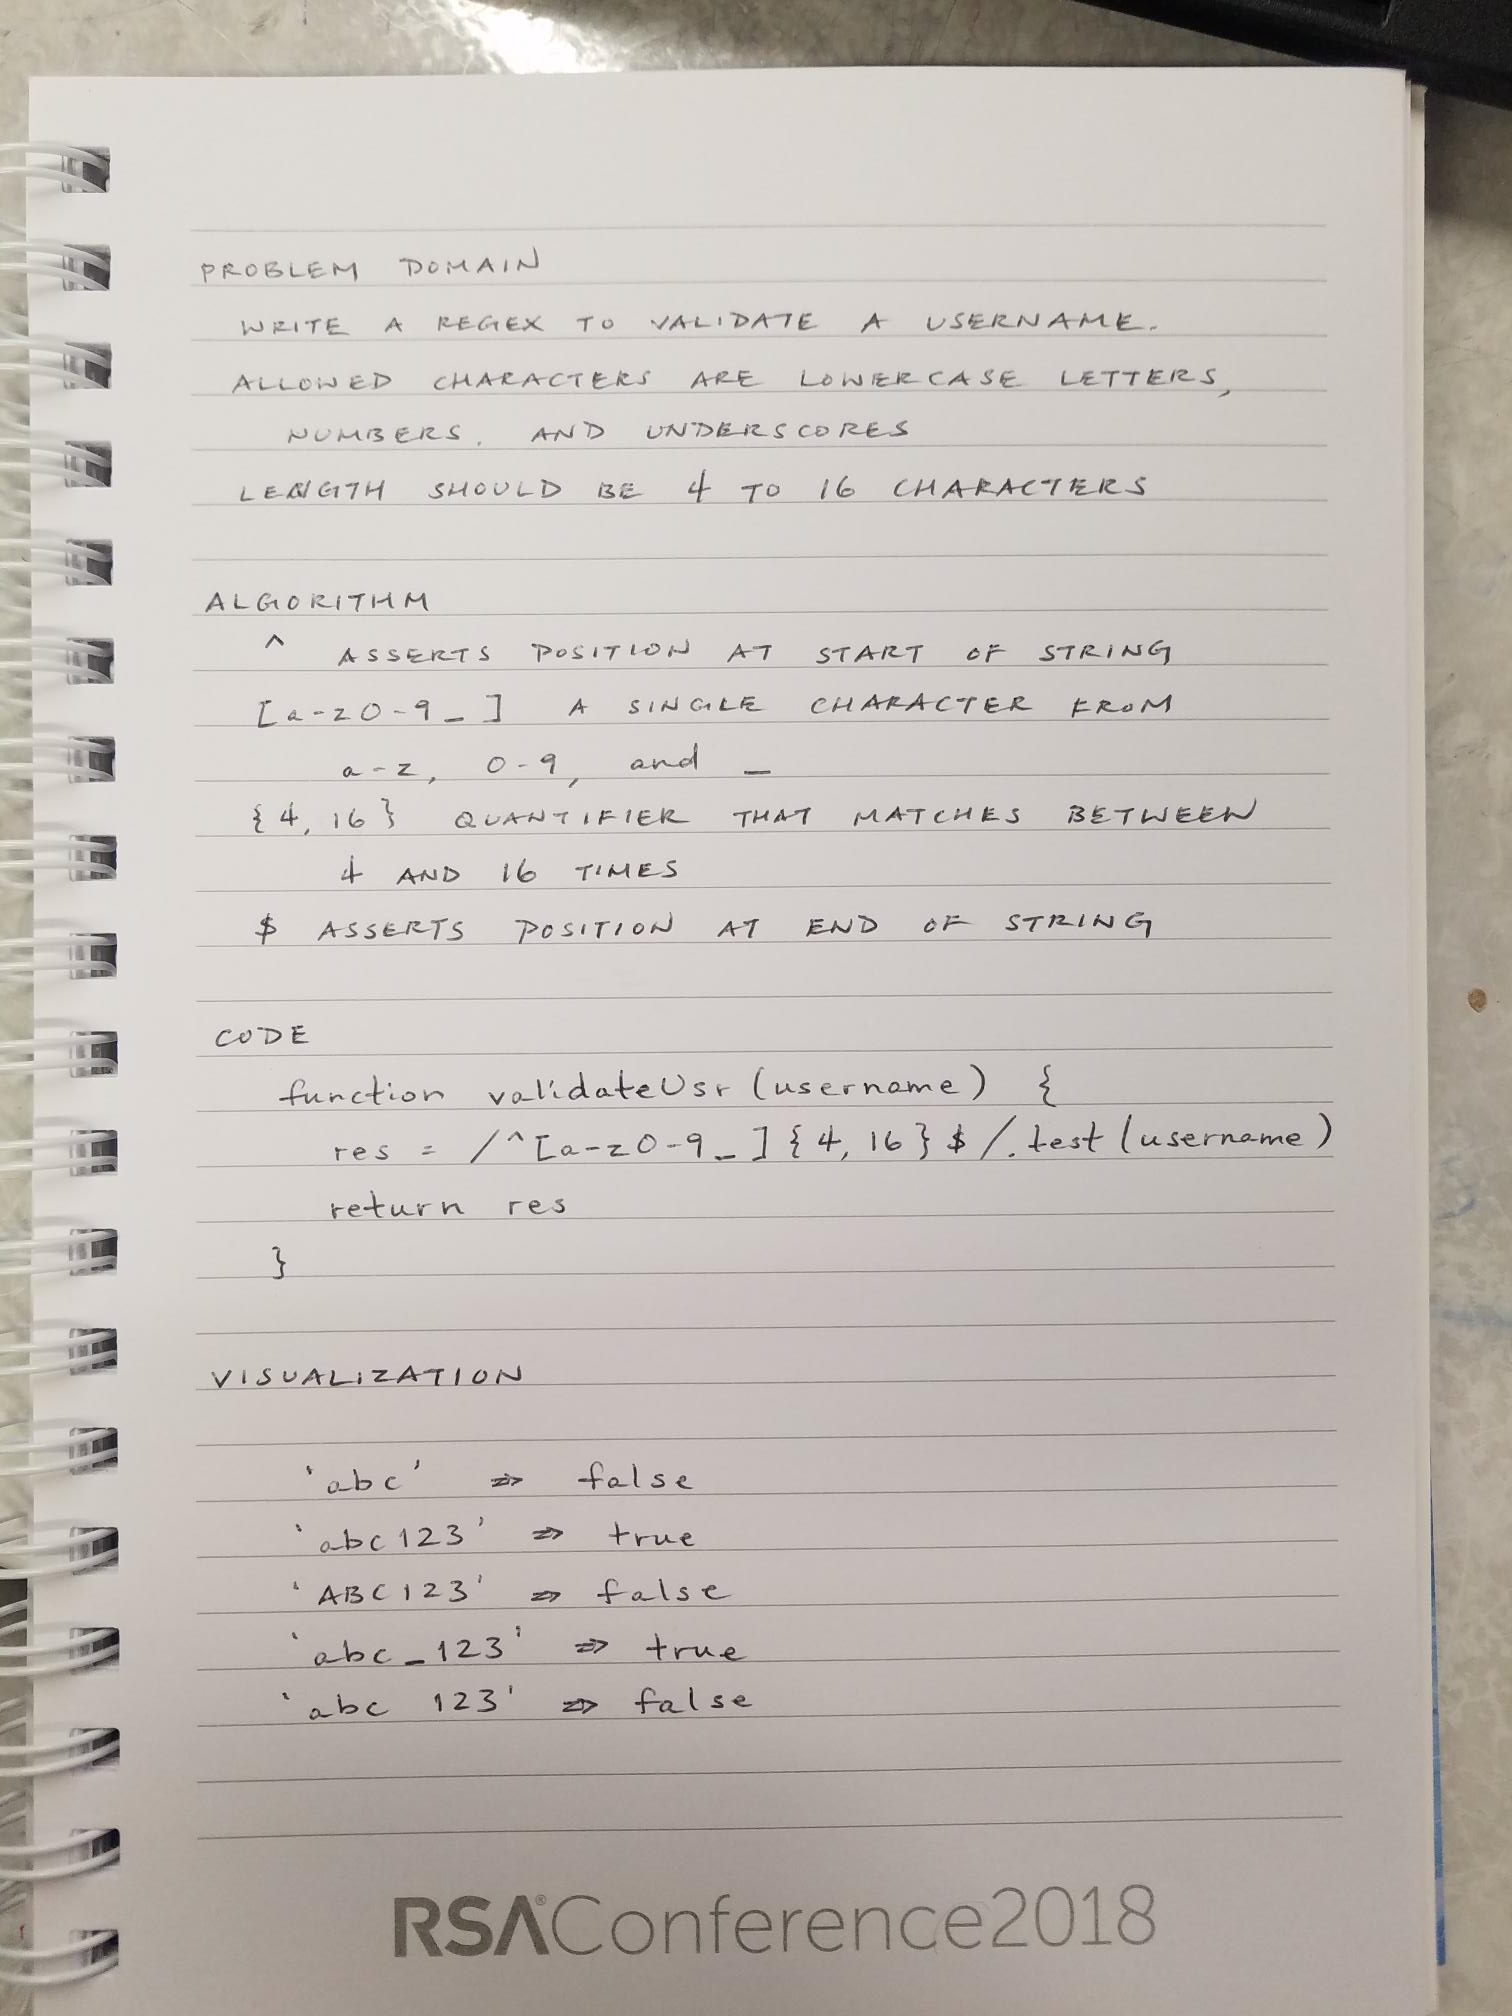 PROBLEM DOMAIN
WRITE A REGEX TO VALIDATE A USERNAME.
ALLOWED CHARACTERS ARE LOWERCASE LETTERS,
NUMBERS, AND UNDERSCORES
LENGTH SHOULD BE 4 TO 16 CHARACTERS
ALGORITHM
^ ASSERTS POSITION AT START OF STRING
[a-z0-9_] A SINGLE CHARACTER FROM
a-z, 0-9, and _
{4, 16} QUANTIFIER THAT MATCHES BETWEEN
4 AND 16 TIMES
$ ASSERTS POSITION AT END OF STRING
CODE
function validateUsr (username) {
res = /^[a-z0-9_]{4, 16}$/.test (username)
return res
}
VISUALIZATION
'abc' => false
'abc123' => true
'ABC123' => false
'abc_123' => true
'abc 123' => false
RSA®Conference2018